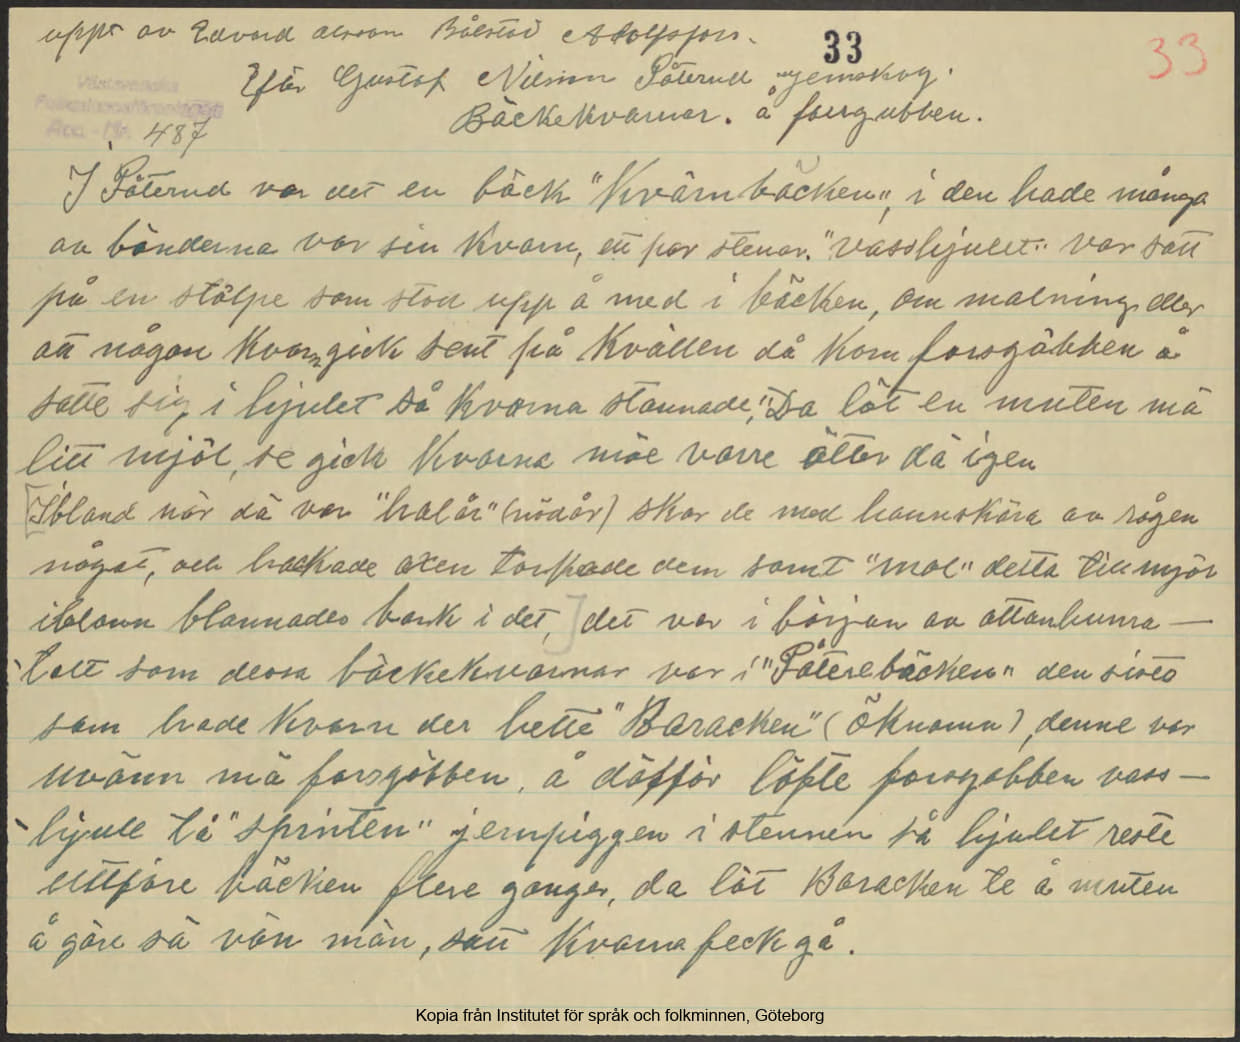 upp av Edvard Olsson Bålstad Adolfsfors.
33
33
Efter Gustaf Nilsson Påterud jernskog.
Västsvenska
Folkminnesföreningen
Acc.-Nr. 487
Bäckekvarnar. å forsgubben.
I Påterud var det en bäck "Kvärnbäcken", i den hade många
av bönderna var sin Kvarn, ett par stenar. "vasshjulet" var satt
på en stölpe som stod upp å ned i bäcken, om malning eller
att någon Kvarn gick sent på Kvällen då Kom forsgöbben å
satte sig i hjulet så Kvarna stannade, "Da löt en muten mä
litt mjöl, se gick Kvarna möe värre ätter dä igen
Ibland när dä var "halår" (nödår) skar de med hannskära av rågen
något, och hackade axen torkade dem samt "mol" detta till mjör
iblann blannades bark i det, det var i början av attanhunra—
talt som dessa bäckekvarnar var i "Påterebäcken" den sista
som hade Kvarn der hette "Baracken" (öknamn), denne var
uvänn mä forsgöbben, å däfför löfte forsgobben vass—
hjule tå "sprinten" jernpiggen i stennen så hjulet reste
uttföre bäcken flere ganger, da löt Baracken te å muten
å göre sä vän män, satt Kvarna feck gå.
Kopia från Institutet för språk och folkminnen, Göteborg